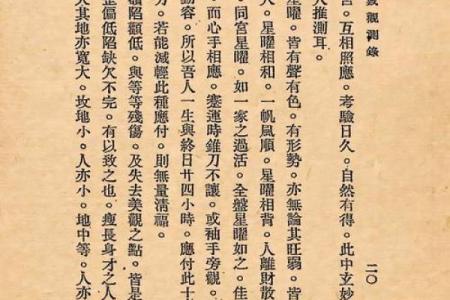 數觀測錄
二〇
宮。互相照應。考驗日久。自然有得。此中玄妙
人推測耳。
星曜。皆有聲有色。有形勢。亦無論其旺弱。皆
人。星曜相和。一帆風順。星曜相背。人離財散
。同宮星曜。如一家之過活。全盤星曜如之。佳
。而心手相應。蹇運時錐刀不讓。或袖手旁觀。
動容。所以吾人一生與終日廿四小時。應付此十
方。若能減輕此種應付。則無量清福。
陷顴低。與等等殘傷。及失去美觀之點。皆是
歪偏低陷缺欠不完。有以致之也。瘦長身才之人
大其地亦寬大。坟地小。人亦小。地中等。人亦